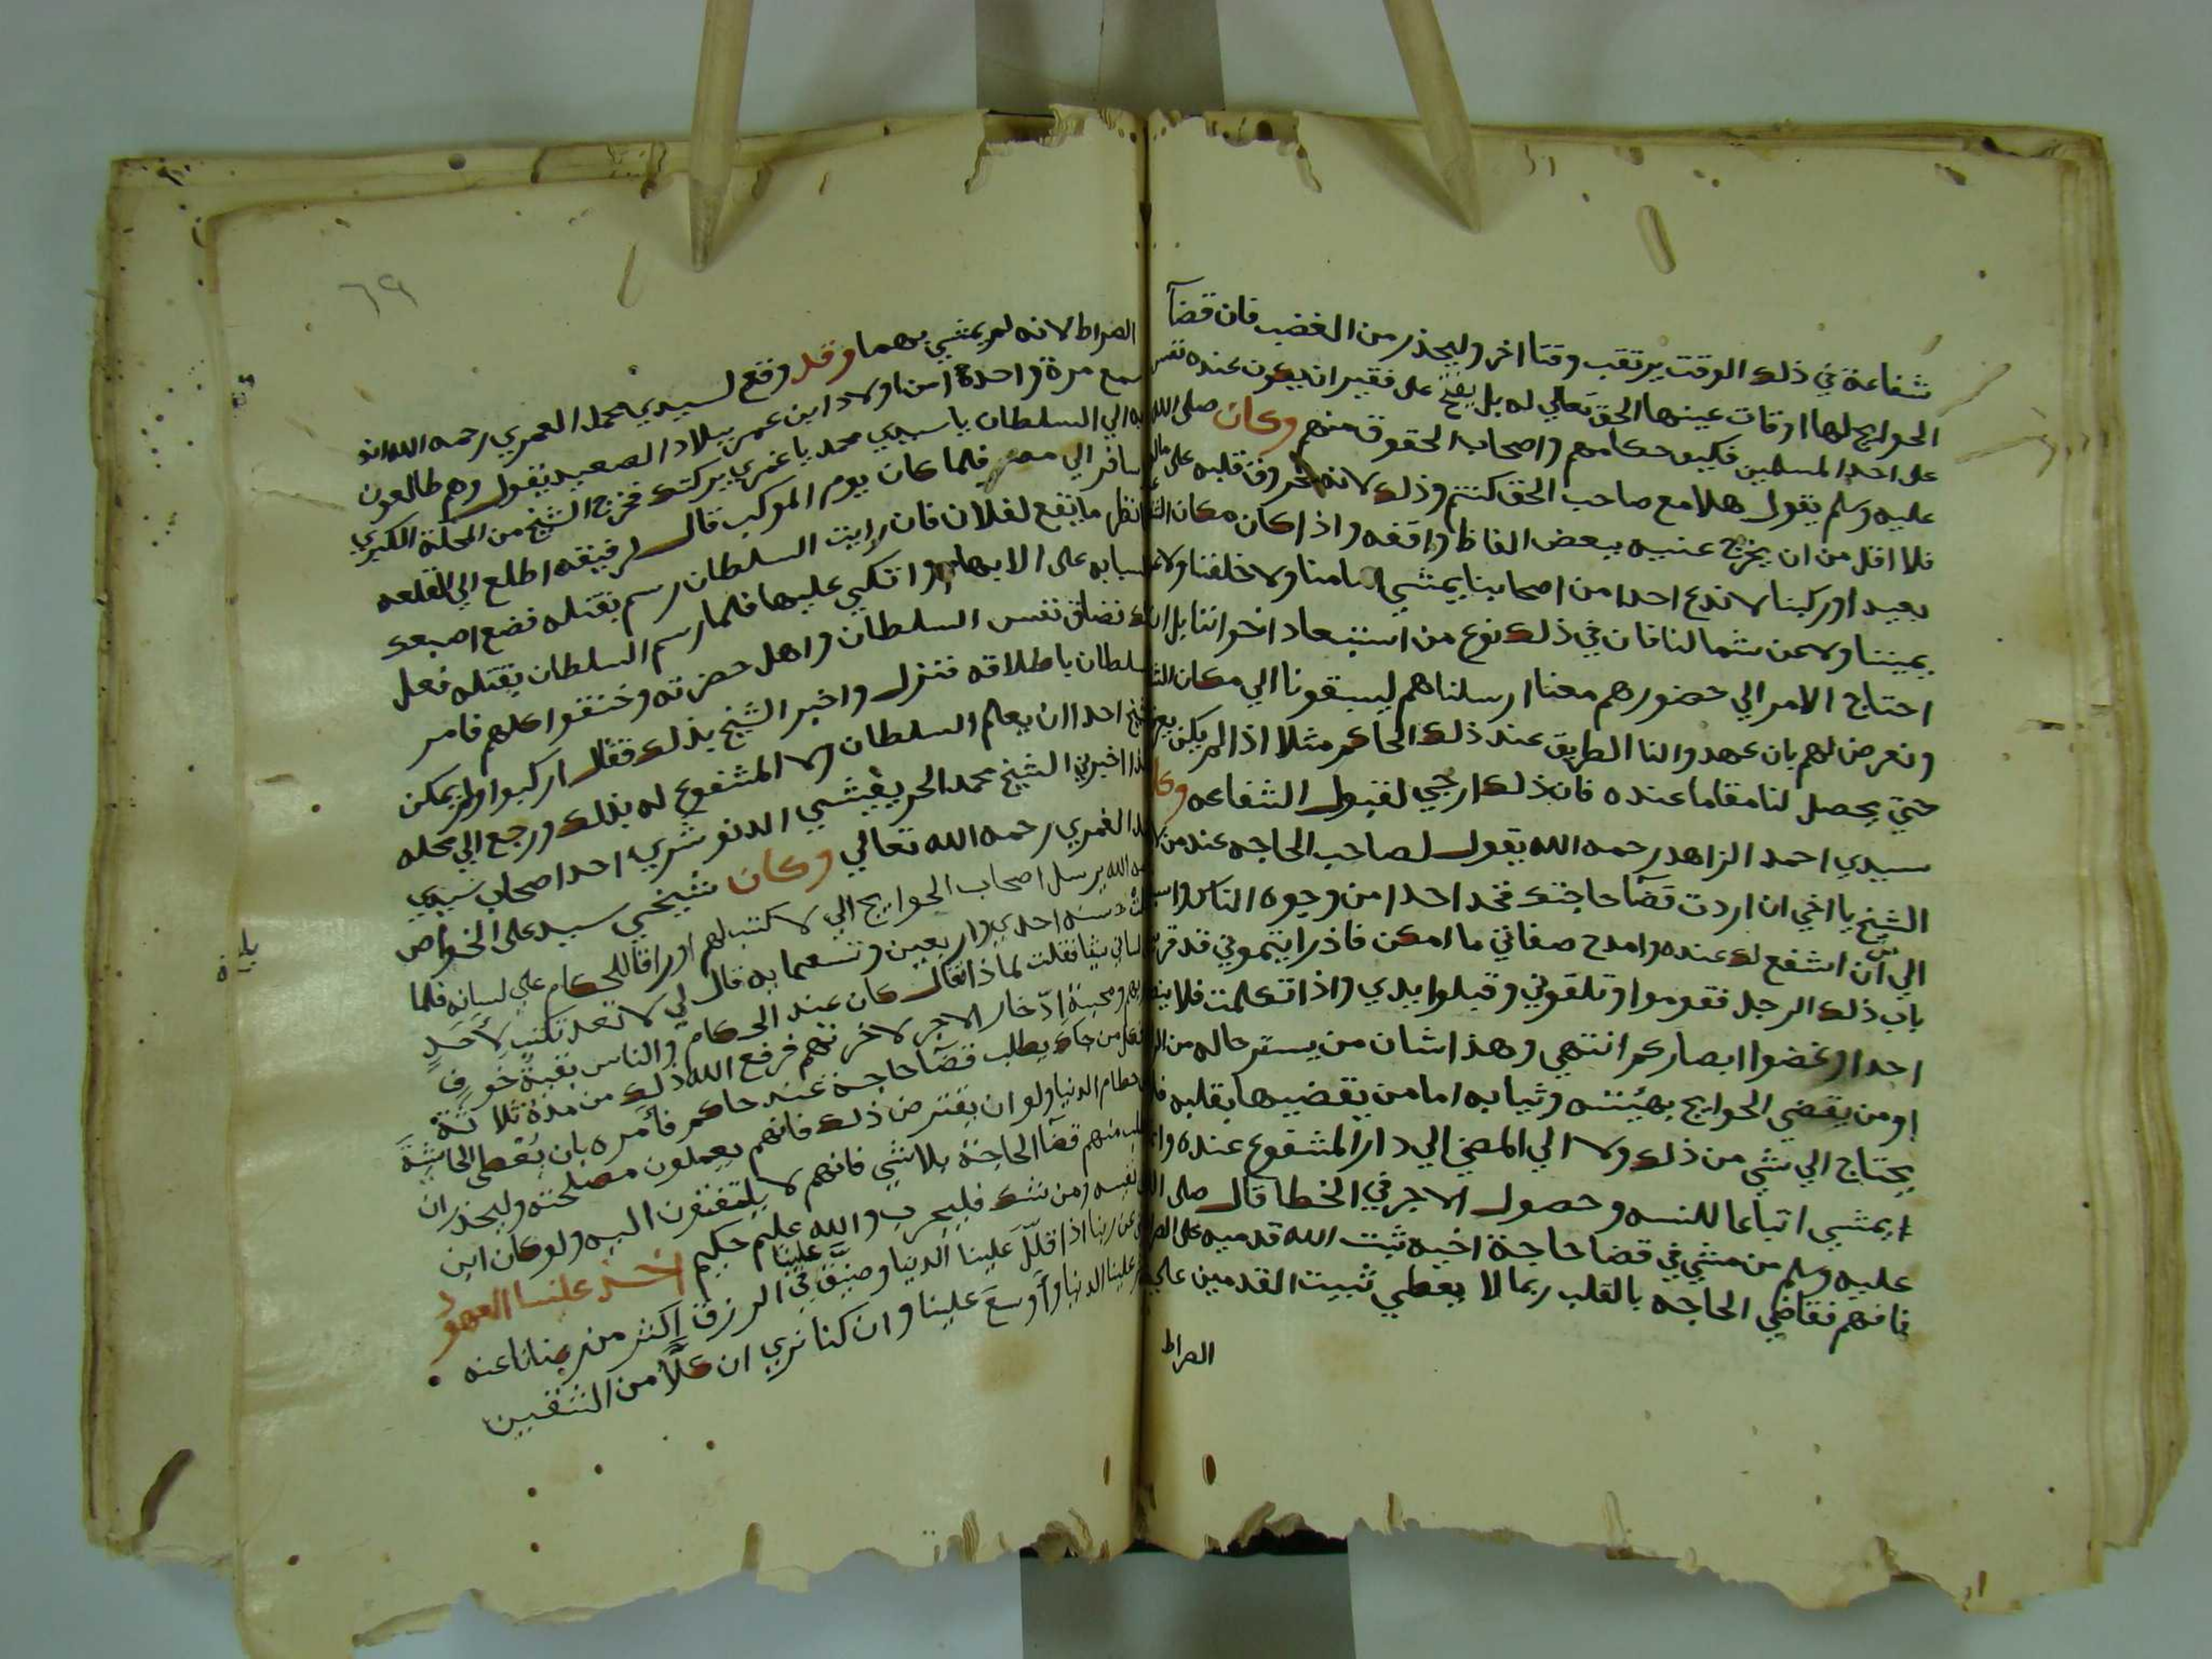 شفاعة في ذلك الوقت يرتقب وقتا اخر وليحذر من الغضب فان قضآ
الحوايج لها اوقات عينها الحق تعالي له بل يقبح على فقير ان يهون عنده نفس
على احد المسلمين فكيف حكامهم واصحاب الحقوق منهم وكان صلى الله
عليه وسلم يقول هلا مع صاحب الحق كنتم وذلك لانه وقت قلبه على ماله
فلا اقل من ان يخرج عنيه ببعض الفاظ واقفه واذا كان مكان
بعيد اوركبنا لا ندع احدا من اصحابنا يمشي امامنا ولا خلفنا ولا
يميننا ولا عن شمالنا فان في ذلك نوع من استبعاد اخواننا بل ان
احتاج الامر الي حضورهم معنا ارسلناهم ليسبقونا الي مكان
ونعرض لهم بان يمهدوا لنا الطريق عند ذلك الحاكم مثلا اذا لم يكن
حتي يحصل لنا مقاما عنده فان ذلك ارجي لقبول الشفاعه وكان
سيدي احمد الزاهد رحمه الله يقول لصاحب الحاجه عند من
الشيخ يا اخي ان اردت قضآ حاجتك فخذ احدا من وجوه الناس
الي ان اشفع لك عنده وامدح صفاتي ما امكن فاذا رايتموني قد قربت
باب ذلك الرجل فقوموا وتلقوني وقبلوا يدي واذا تكلمت فلا
احدا وغضوا ابصاركم انتهي وهذا شان من يستر حاله من
اومن يقضي الحوايج بهيئته وثيابه اما من يقضيها بقلبه فلا
يحتاج الي شي من ذلك ولا الي المضي الي دار المشفوع عنده وانما
يمشي اتباعا للسنه وحصول الاجر في الخطا قال صلى الله
عليه وسلم من مشي في قضا حاجة اخيه ثبت الله قدميه على الصراط
فافهم فقاضي الحاجه بالقلب ربما لا يعطي ثبيت القدمين علي
الصراط
٦٩
الصراط لانه لم يمشي بهما وقد وقع لسيدي محمد الغمري رحمه الله انه
سمع مرة واحدة امن اولاد ابن عمر ببلاد الصعيد يقول وهم طالعون
به الي السلطان يا سيدي محمد يا غمري بركتك فخرج الشيخ من المحلة الكبري
سافر الي مصر فلما كان يوم الموكب قال لرفيقه اطلع الي القلعه
انظر ما يقع لفلان فان رايت السلطان رسم بقتله فضع اصبعك
السبابه على الابهام واتكي عليها فلما رسم السلطان بقتله فعل
ذلك تضايق نفس السلطان واهل حضرته وخنقوا كلهم فامر
السلطان باطلاقه فنزل واخبر الشيخ بذلك فقال اركبوا ولم يمكن
الشيخ احدا ان يعلم السلطان ولا المشفوع له بذلك ورجع الي محله
هذا اخبرني الشيخ محمد الحريفيشي الدنوشري احد اصحاب سيدي
محمد الغمري رحمه الله تعالي وكان شيخي سيد على الخواص
رحمه الله يرسل اصحاب الحوايج الي لا كتب لهم اوراقا للحكام على لسانه فلما
سنه احدي واربعين وتسعمايه قال لي لا تعد تكتب لأحد
لساني شيا فقلت لماذا فقال كان عند الحكام والناس بقية خوف
ومحبة ادخار الاجر لاخرتهم فرفع الله ذلك من مدة ثلاثة
من جاك يطلب قضآ حاجة عند حاكم فأمره بان يعطي الحاشية
حطام الدنيا ولو ان يقترض ذلك فانهم يعملون مصلحته وليحذر ان
يطلب منهم قضآ الحاجة بلاشي فانهم لا يلتفتون اليه ولو كان ابن
نفيسه ومن شك فليجرب والله عليم حكيم اخذ علينا العهود
عن ربنا اذا قلل علينا الدنيا وضيق علينا في الرزق اكثر من رضانا عنه
علينا الدنيا وأوسع علينا وان كنا نري ان كلا من الشقين